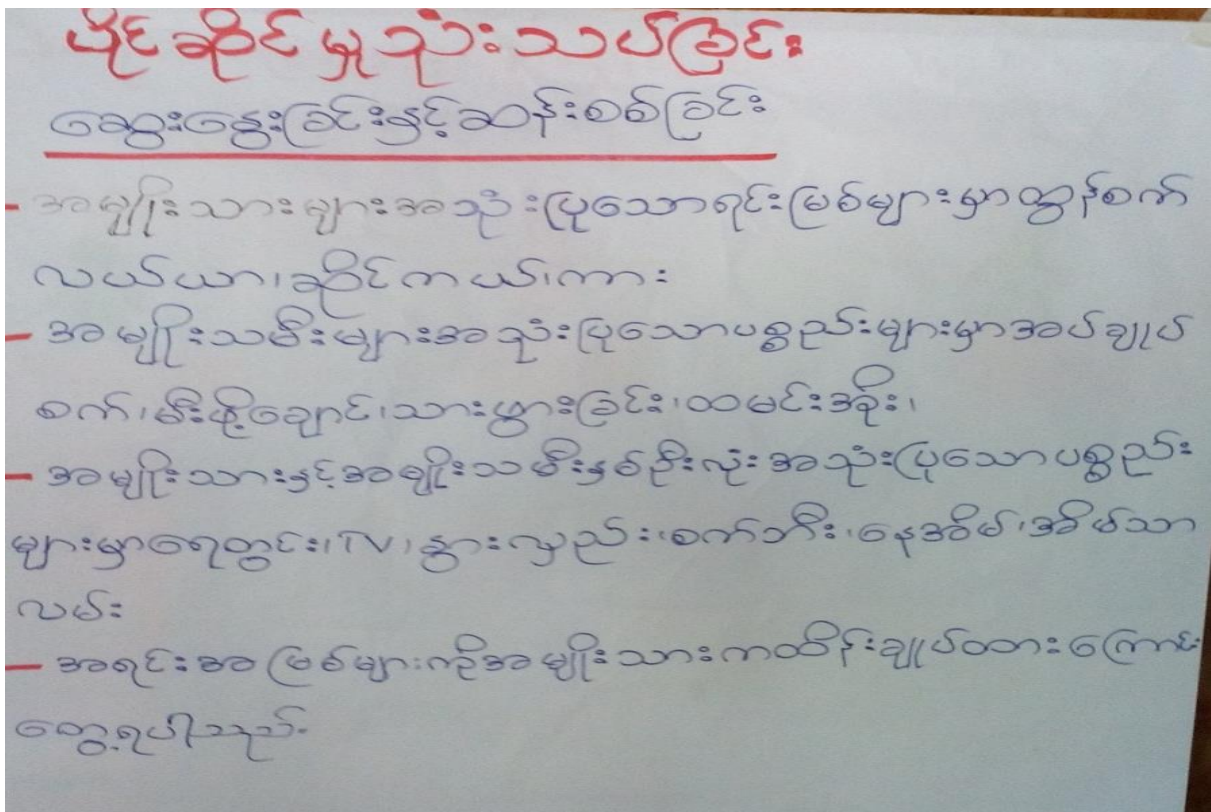 ပိုင်ဆိုင်မှုသုံးသပ်ခြင်း
ဆွေးနွေးခြင်းနှင့်ဆန်းစစ်ခြင်း
- အမျိုးသားများအသုံးပြုသောရင်းမြစ်များမှာထွန်စက်
လယ်ယာ၊ ဆိုင်ကယ်၊ ကား
- အမျိုးသမီးများအသုံးပြုသောပစ္စည်းများမှာအပ်ချုပ်
စက်၊ မီးဖိုချောင်၊ သားဖွားခြင်း၊ ထမင်းအိုး၊
- အမျိုးသားနှင့်အမျိုးသမီးနှစ်ဦးလုံးအသုံးပြုသောပစ္စည်း
များမှာရေတွင်း၊ TV၊ နွားလှည်း၊ စက်ဘီး၊ နေအိမ်၊ အိမ်သာ
လမ်း
- အရင်းအမြစ်များကိုအမျိုးသားကထိန်းချုပ်ထားကြောင်း
တွေ့ရပါသည်